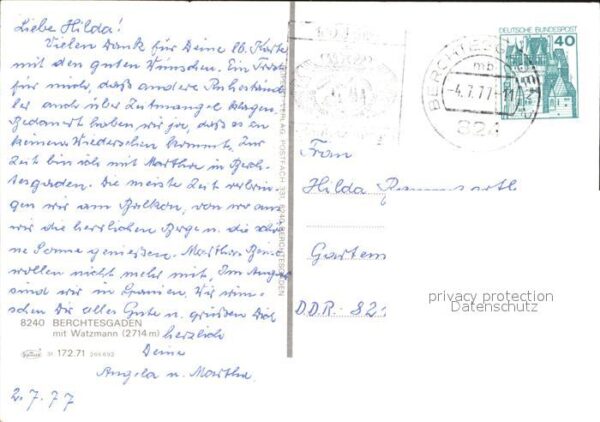 Liebe Hilda!
Vielen Dank für Deine lb. Karte
mit den guten Wünschen. Ein Trost
für mich, daß andere Ruheständ-
ler auch über Zeitmangel klagen.
Bedauert haben wir ja, daß es zu
keinem Wiedersehen kommt. Zur
Zeit bin ich mit Martha in Berch-
tesgaden. Die meiste Zeit verbrin-
gen wir am Balkon, von wo aus
wir die herrlichen Berge u. die schö-
ne Sonne genießen. Marthas Beine
wollen nicht mehr mit. Im August
sind wir in Spanien. Wir wün-
schen Dir alles Gute u. grüßen Dich
herzlich
Deine
Angela u. Martha
2.7.77
8240 BERCHTESGADEN
mit Watzmann (2714 m)
172.71
VERLAG, POSTFACH 331, 8240 BERCHTESGADEN
DEUTSCHE BUNDESPOST
40
BERCHTESGADEN
mb
-4.7.77-11
824
Frau
Hilda
Garten
DDR-821
privacy protection
Datenschutz